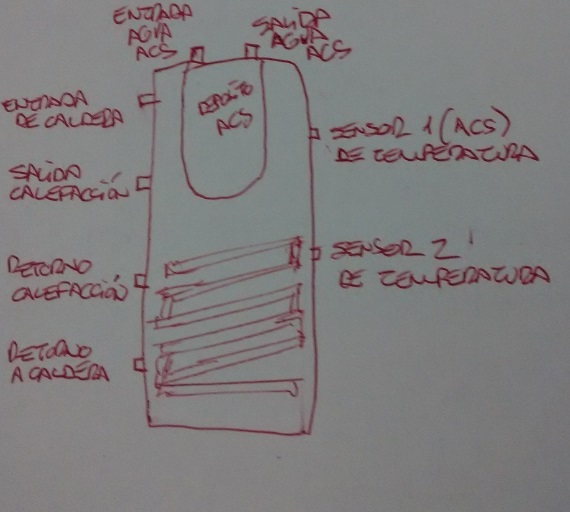 ENTRADA
AGUA
ACS
SALIDA
AGUA
ACS
DEPOSITO
ACS
ENTRADA
DE CALDERA
SENSOR 1 (ACS)
DE TEMPERATURA
SALIDA
CALEFACCIÓN
RETORNO
CALEFACCIÓN
SENSOR 2
DE TEMPERATURA
RETORNO
A CALDERA